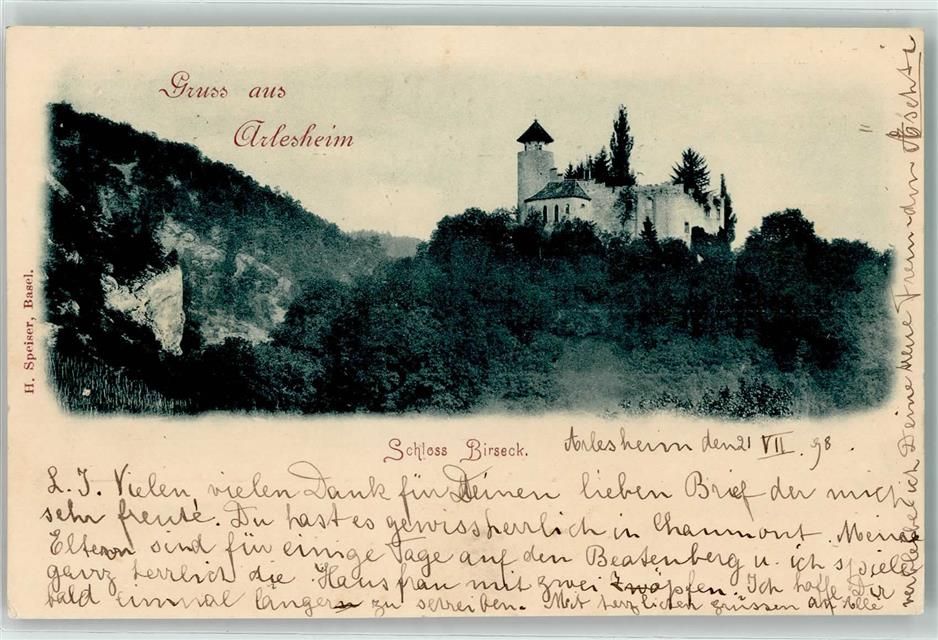 Gruss aus
Arlesheim
H. Speiser, Basel.
Schloss Birseck.
Arlesheim den 21 VII. 98.
L. J. Vielen, vielen Dank für Deinen lieben Brief der mich
sehr freute. Du hast es gewiss herrlich in Chaumont. Meine
Eltern sind für einige Tage auf den Beatenberg u. ich spiele
ganz herrlich die Hausfrau mit zwei Zöpfen. Ich hoffe Dir
bald einmal länger zu schreiben. Mit herzlichen Grüssen an Alle
verbleibe ich Deine treue Freundin